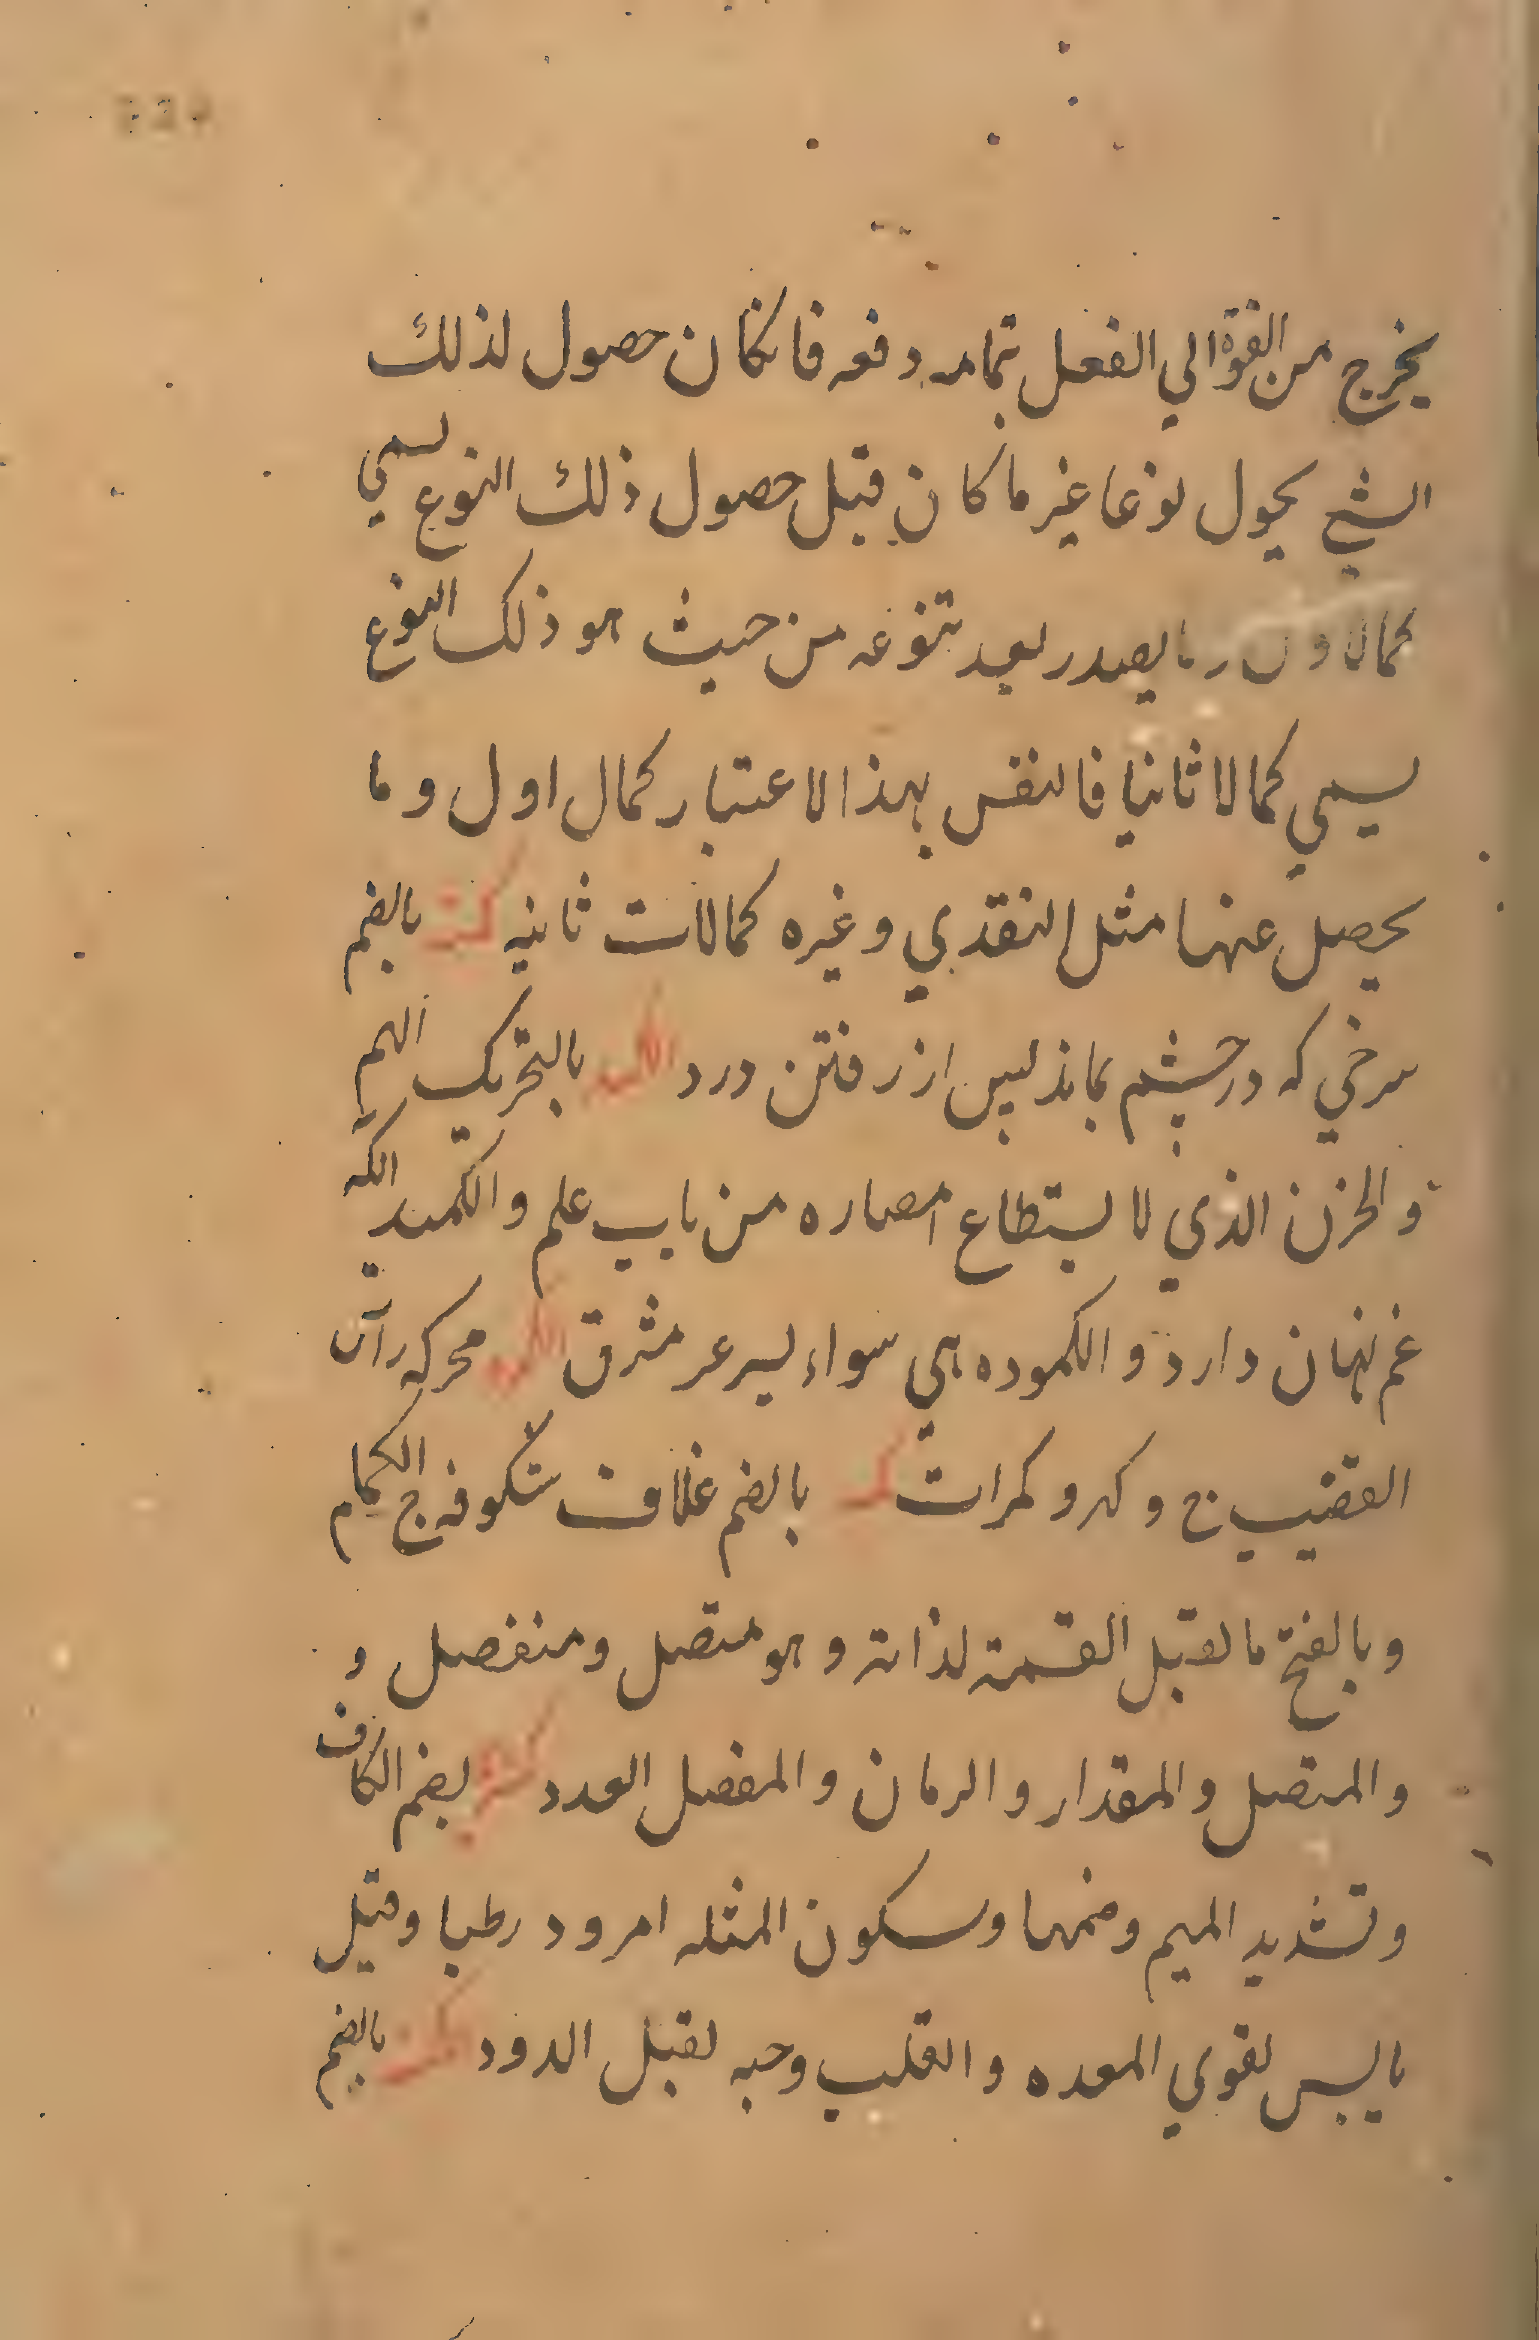 يخرج من القوة الي الفعل بتمامه دفعه فانكان حصول لذلك
الشي يحول نوعا غير ما كان قبل حصول ذلك النوع يسمي
كمالا اول وما يصدر بعد تنوعه من حيث هو ذلك النوع
يسمي كمالا ثانيا فالنفس بهذا الاعتبار كمال اول وما
يحصل عنها مثل التغذي وغيره كمالات ثانيه كمنه بالضم
سرخي كه در چشم بماند پس از رفتن درد الكمد بالتحريك الهم
والحزن الذي لا يستطاع امصاره من باب علم والكميد الكه
غم نهان دارد والكموده هي سواد يسير غير مشرق الكمر محركه راس
القضيب ج وكمر وكمرات كم بالضم غلاف شكوفه ج الكمام
وبالفتح ما يقبل القسمة لذاته وهو متصل ومنفصل و
والمتصل والمقدار والزمان والمفصل العدد كمثري بضم الكاف
وتشديد الميم وضمها وسكون المثلثه امرود رطبا وقيل
يابس يقوي المعده والقلب وحبه يقتل الدود بالضم